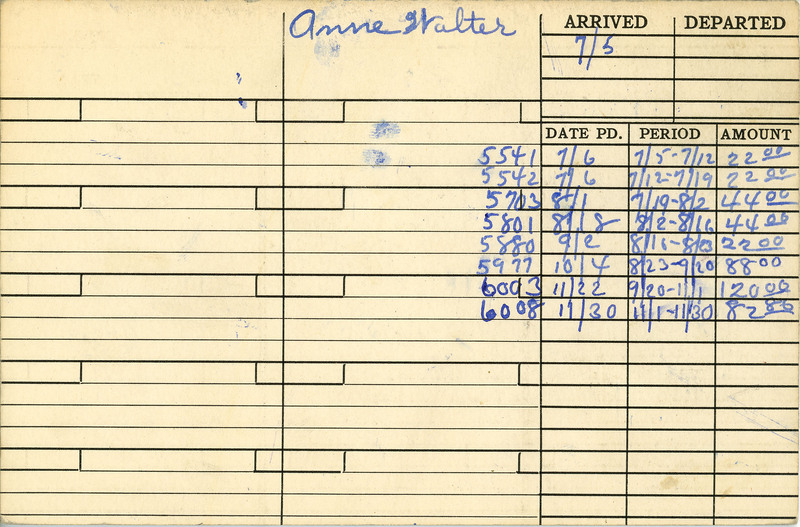 Anne Walter
ARRIVED DEPARTED
7/5
DATE PD. PERIOD AMOUNT
5541 7/6 7/5-7/12 22 00
5542 7/6 7/12-7/19 22 00
5703 8/1 7/19-8/2 44 00
5801 8/18 8/2-8/16 44 00
5880 9/2 8/16-8/23 22 00
5977 10/4 8/23-9/20 88 00
6003 11/22 9/20-11/1 120 00
6008 11/30 11/1-11/30 82 86